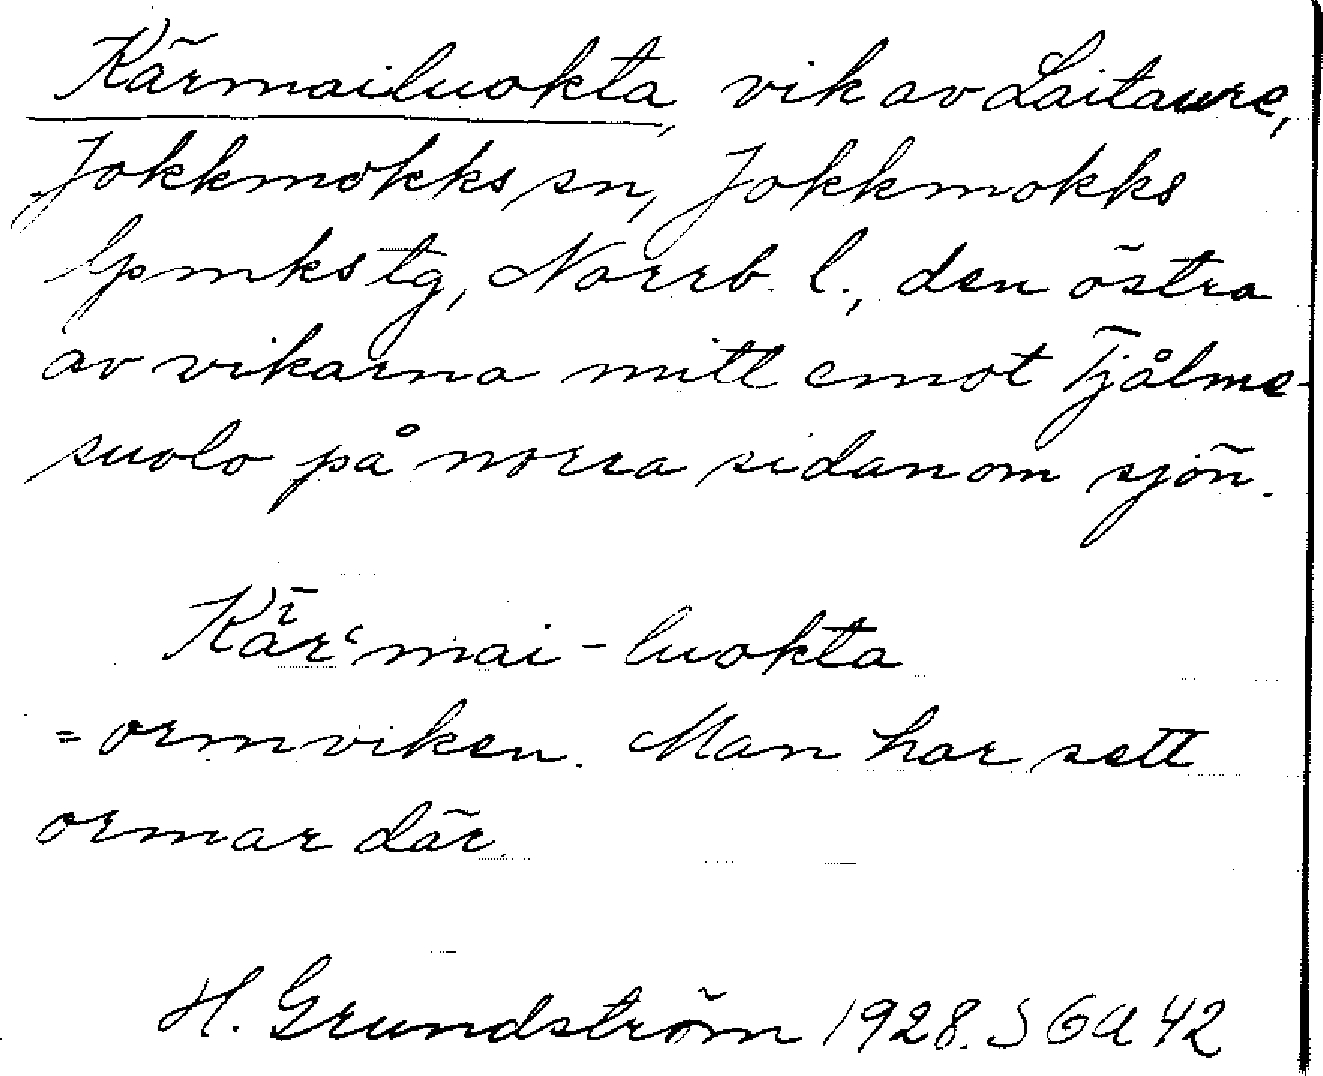 Kärmailuokta, vik av Laitaure,
Jokkmokks sn, Jokkmokks
lpmks tg, Norrb. l., den östra
av vikarna mitt emot Tjålme-
suolo på norra sidan om sjön.
Kär̄ʿmai-luokta
= ormviken. Man har sett
ormar där.
H. Grundström 1928. SGA 42